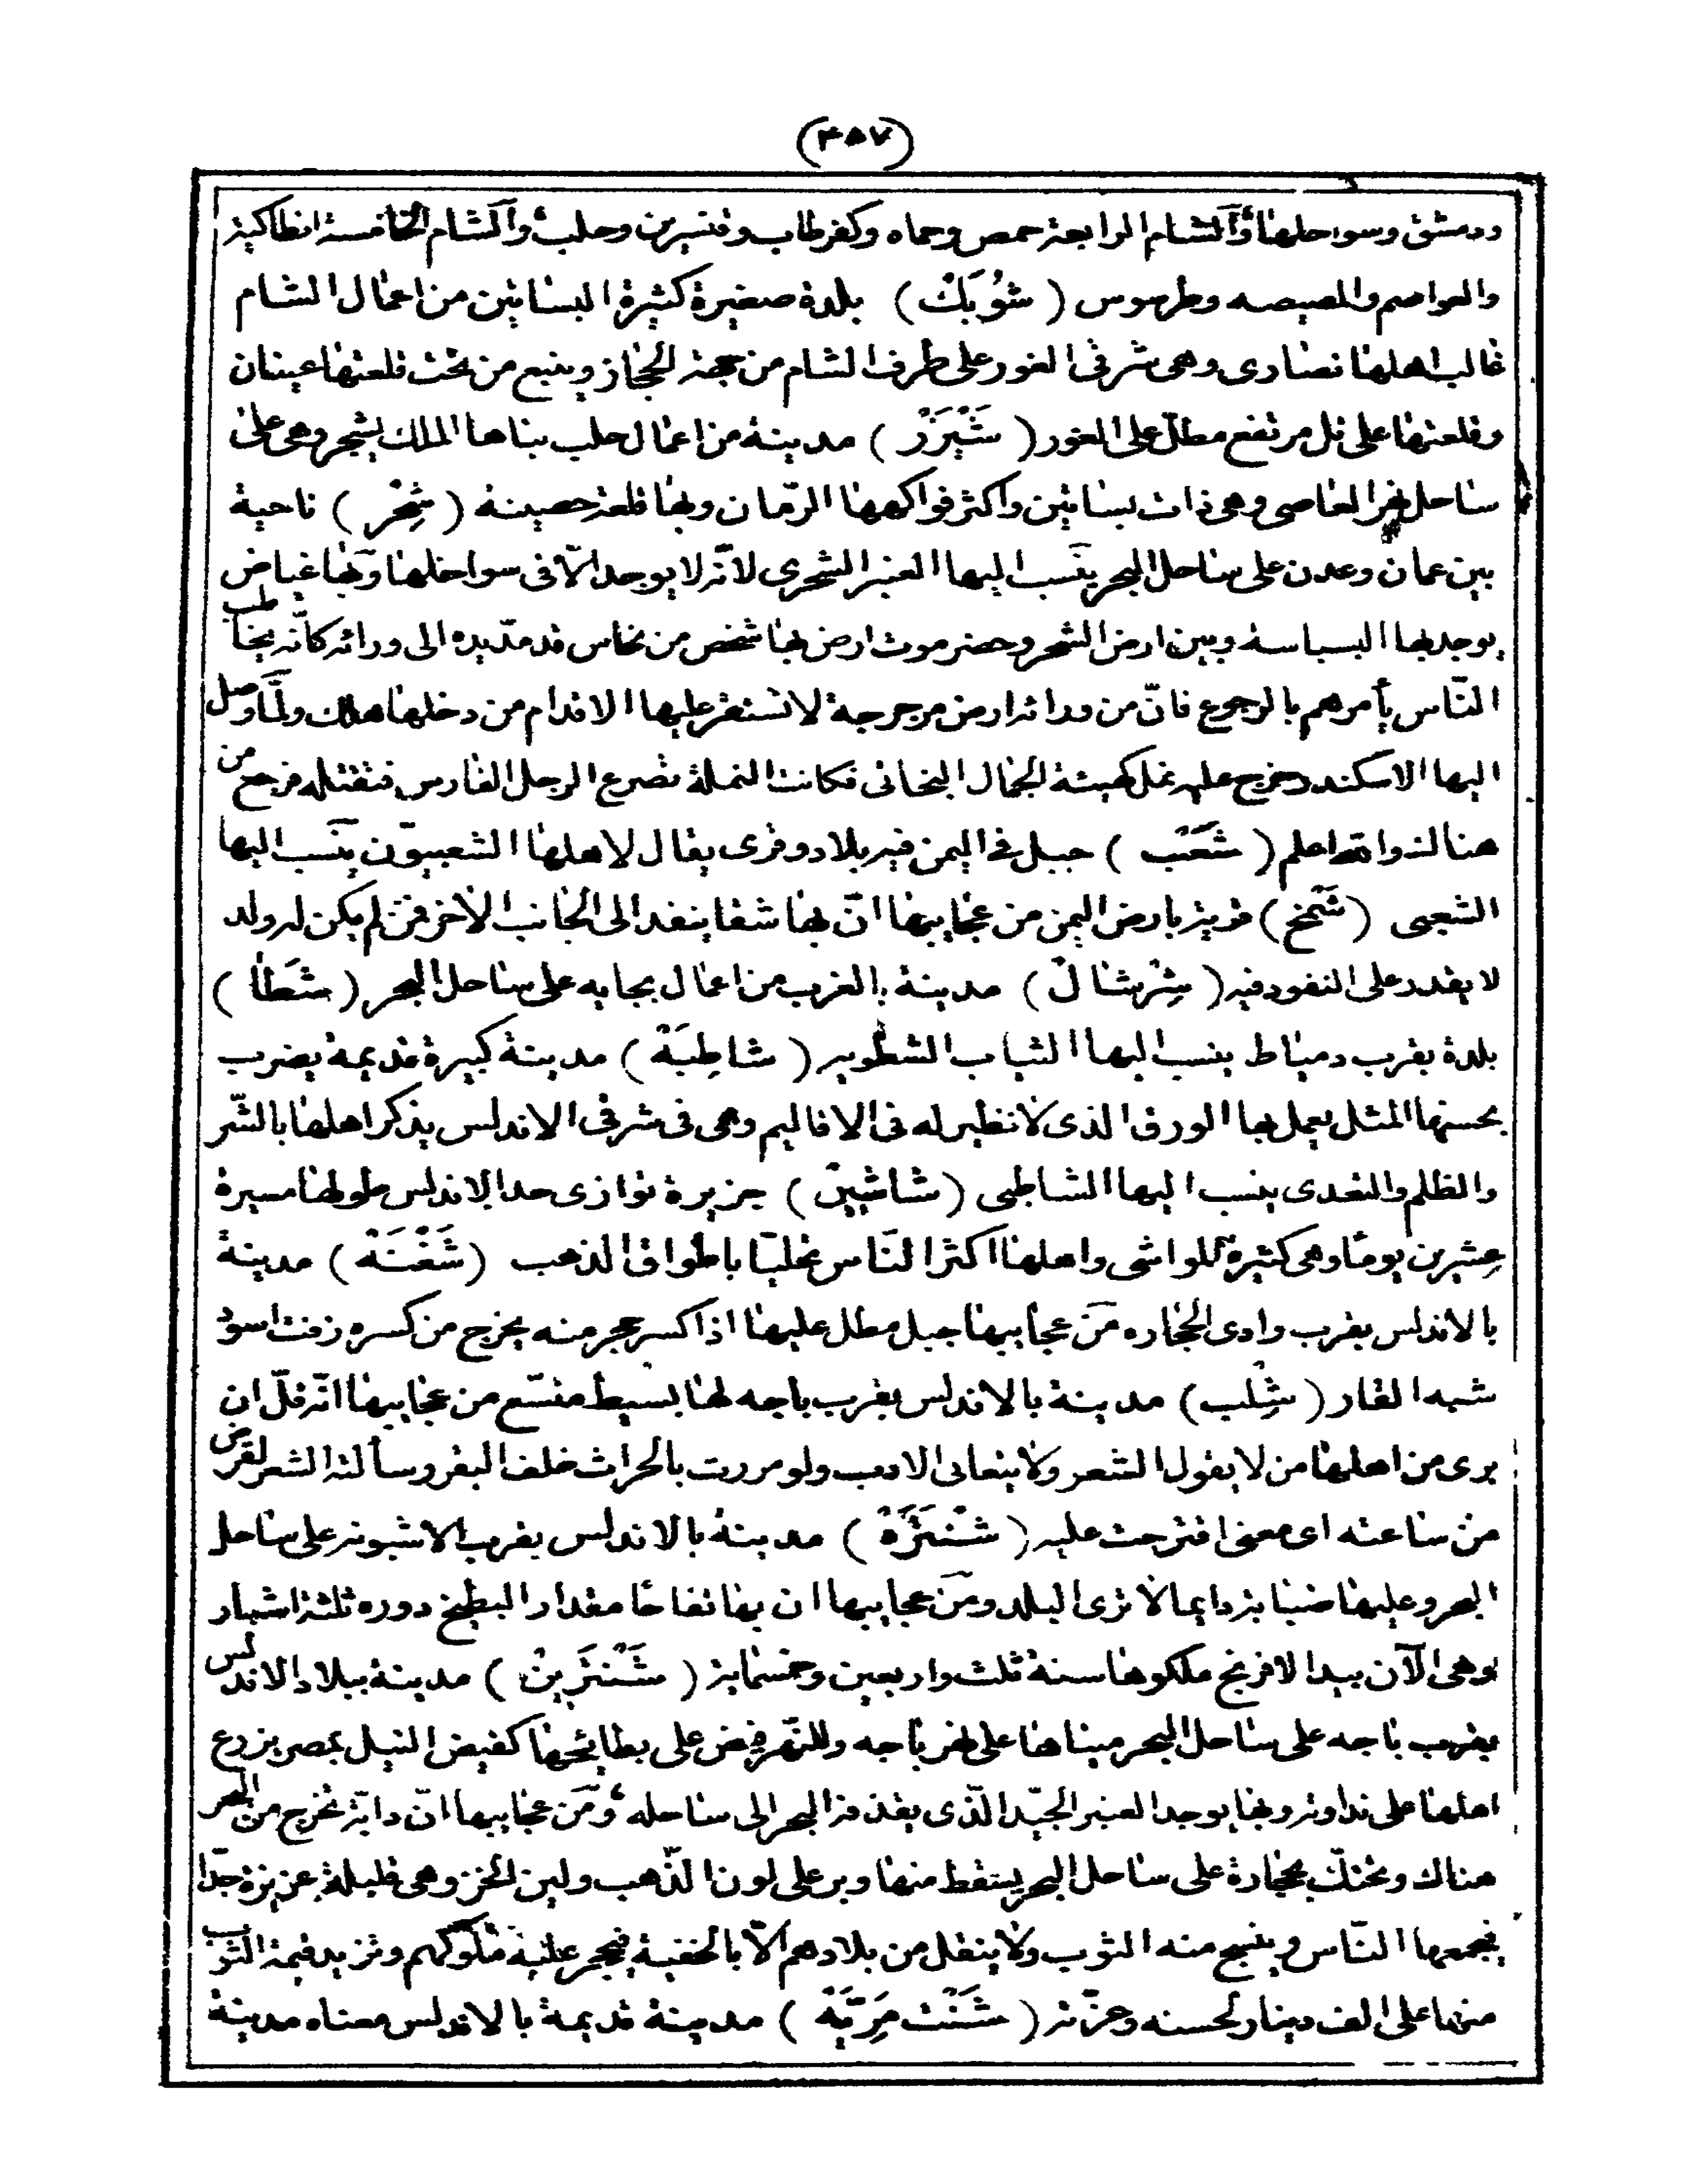 (٤٥٧)
ودمشق وسواحلها والشام الرابعة حمص وحماه وكفرطاب وقنسرين وحلب والشام الخامسة انطاكية
والعواصم والمصيصه وطرسوس (شَوْبَكْ) بلدة صغيرة كثيرة البساتين من اعمال الشام
غالب اهلها نصارى وهى شرقى الغور على طرف الشام من جهة الحجاز وينبع من تحت قلعتها عينان
وقلعتها على تل مرتفع مطلّ على الغور (شَيْزَرْ) مدينة من اعمال حلب بناها الملك يشجر وهى على
ساحل نهر العاصى وهى ذات بساتين واكثر فواكهها الرّمان وبها قلعة حصينة (شِحْر) ناحية
بين عمان وعدن على ساحل البحر ينسب اليها العنبر الشحرى لانّه لا يوجد الّا فى سواحلها وبها غياض
يوجد بها البسباسة وبين ارض الشحر وحضرموت ارض بها شخص من نحاس قد مدّ يده الى ورائه كانّه يخاطب
النّاس يأمرهم بالرجوع فانّ من ورائه ارض مرجرجة لا تستقر عليها الاقدام من دخلها هلك ولمّا وصل
اليها الاسكندر خرج عليه نمل كهيئة الجمال البخاتى فكانت النملة تصرع الرجل الفارس فتقتله فرجع من
هنالك والله اعلم (شَعْب) جبل فى اليمن فيه بلاد وقرى يقال لاهلها الشعبيّون ينسب اليها
الشعبى (شَمْخ) قرية بارض اليمن من عجايبها انّ بها شقا ينفد الى الجانب الاخر فمن لم يكن له ولد
لا يقدر على النفود فيه (شِرْشالْ) مدينة بالغرب من اعمال بجايه على ساحل البحر (شَطَا)
بلدة بقرب دمياط ينسب اليها الثياب الشطويه (شاطِبَة) مدينة كبيرة قديمة يضرب
بحسنها المثل يعمل بها الورق الذى لا نظير له فى الاقاليم وهى فى شرقى الاندلس يذكر اهلها بالشّر
والظلم والتعدى ينسب اليها الشاطبى (شاشين) جزيرة توازى حد الاندلس طولها مسيرة
عشرين يوما وهى كثيرة المواشى واهلها اكثر النّاس تحليّا باطواق الذهب (شَغْنَة) مدينة
بالاندلس بقرب وادى الحجاره من عجايبها جبل مطل عليها اذا كسر حجر منه يخرج من كسره زفت اسود
شبه القار (شِلْب) مدينة بالاندلس بقرب باجه لها بسيط متسّع من عجايبها انّه قلّ ان
يرى من اهلها من لا يقول الشعر ولا يتعانى الادب ولو مررت بالحراث خلف البقر وسألته الشعر لقرض
من ساعته اى معنى اقترحت عليه (شَنْتَرَة) مدينة بالاندلس بقرب الاشبونه على ساحل
البحر وعليها ضبابة دايما لا ترى البلد ومن عجايبها ان بها تفاحا مقدار البطيخ دوره ثلثة اشبار
وهى الآن بيد الافرنج ملكوها سنة ثلث واربعين وخمسماية (شَنْتَرِينْ) مدينة ببلاد الاندلس
بقرب باجه على ساحل البحر مبناها على نهر باجه وللنّهر فيض على بطايحها كفيض النيل بمصر يزرع
اهلها على نداوته وبها يوجد العنبر الجيّد الذّى يقذفه البحر الى ساحله ومن عجايبها انّ دابّة تخرج من البحر
هناك وتحتكّ بحجارة على ساحل البحر يسقط منها وبر على لون الذّهب ولين الخز وهى قليلة عزيزة جدّا
يجمعها النّاس وينسج منه الثوب ولا ينقل من بلادهم الّا بالخفية فيحجر عليه ملوكهم وتزيد قيمة الثوب
منها على الف دينار لحسنه وعزّته (شَنْت مَرِيَّة) مدينة قديمة بالاندلس معناه مدينة